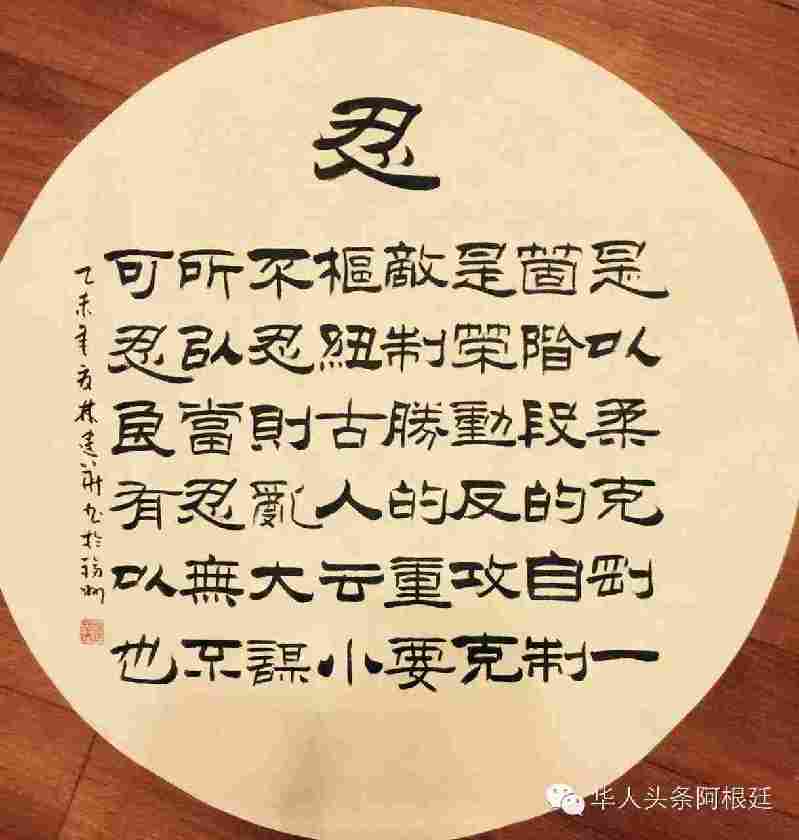 忍
是以柔克剛一
箇階段的自制
是策動反攻克
敵制勝的重要
樞紐古人云小
不忍則亂大謀
所以當忍無不
可忍良有以也
乙未年夏林建书於福州
华人头条阿根廷